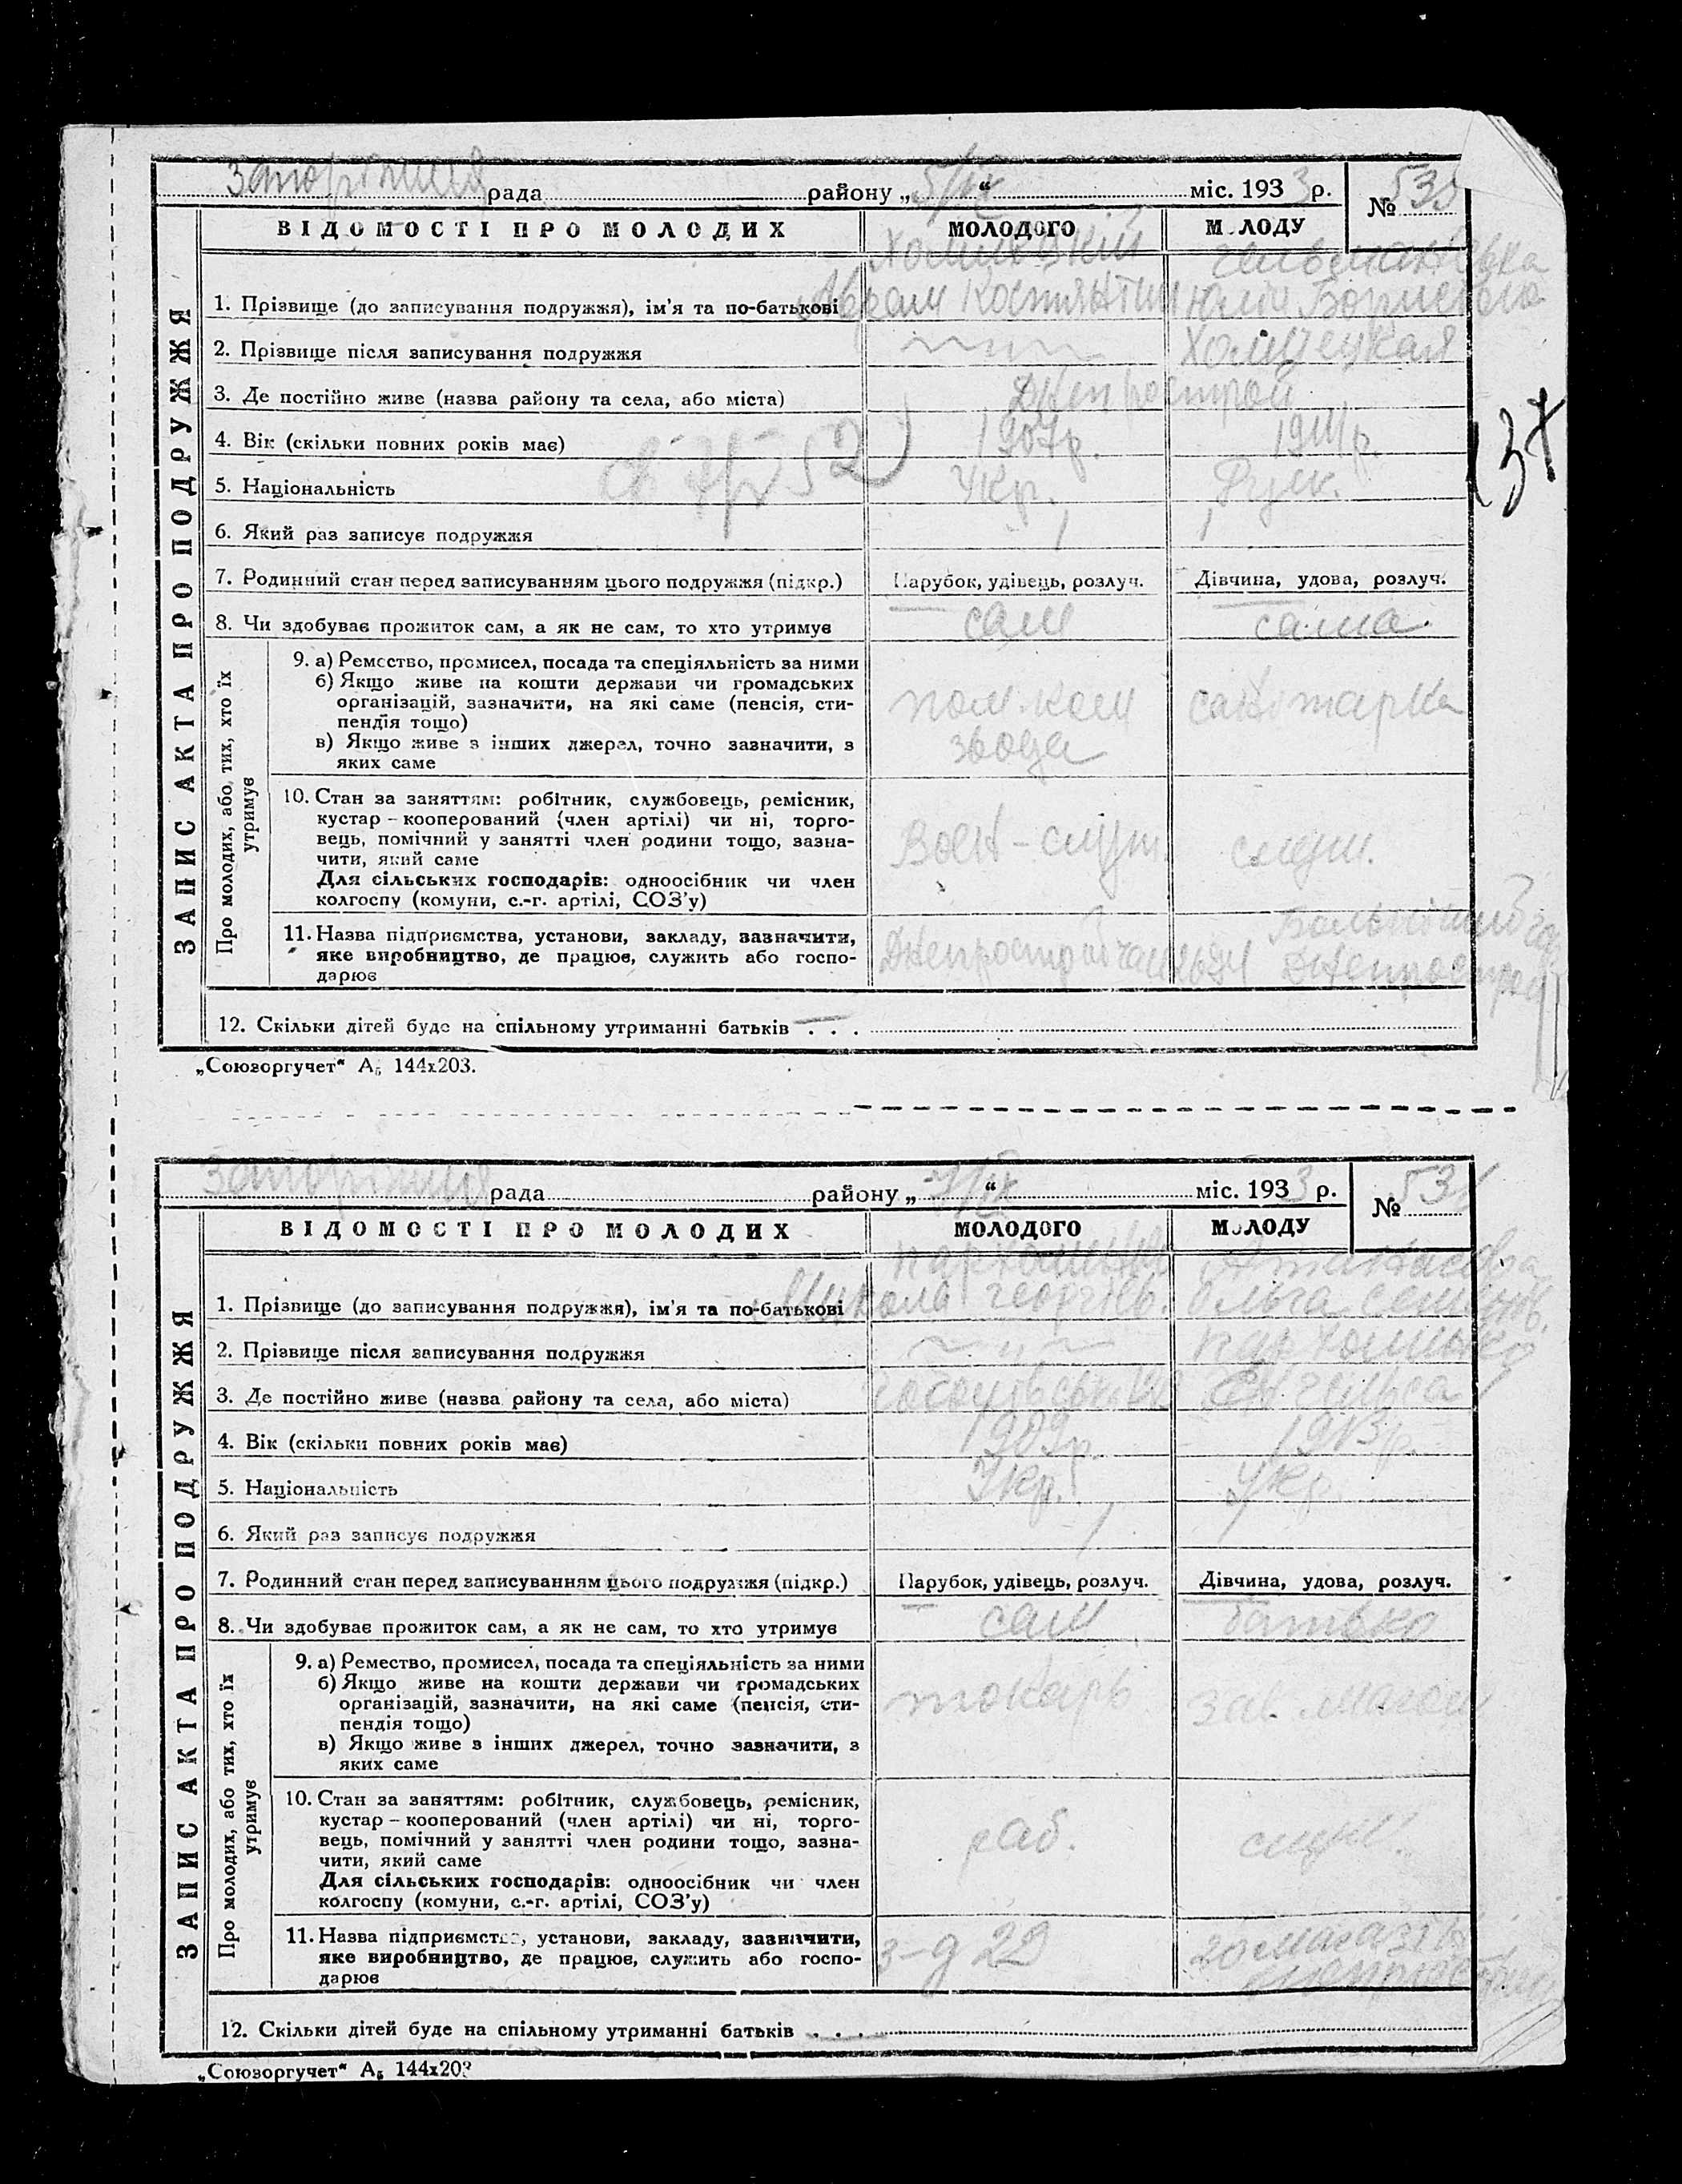 Запоріжжя рада району „5/IX“ міс. 1933 р. № 535
ВІДОМОСТІ ПРО МОЛОДИХ МОЛОДОГО МОЛОДУ
ЗАПИС АКТА ПРО ПОДРУЖЖЯ
1. Прізвище (до записування подружжя), ім’я та по-батькові
2. Прізвище після записування подружжя
3. Де постійно живе (назва району та села, або міста) Днепрострой
4. Вік (скільки повних років має) 1907р. 1911р.
5. Національність Укр. Руск.
6. Який раз записує подружжя 1 1
7. Родинний стан перед записуванням цього подружжя (підкр.) Парубок, удівець, розлуч. Дівчина, удова, розлуч.
8. Чи здобуває прожиток сам, а як не сам, то хто утримує сам сама.
Про молодих, або тих, хто їх утримує
9. а) Ремество, промисел, посада та спеціяльність за ними
б) Якщо живе на кошти держави чи громадських
організацій, зазначити, на які саме (пенсія, сти-
пендія тощо)
в) Якщо живе з інших джерел, точно зазначити, з
яких саме
пом. ком
звода
санітарка
10. Стан за заняттям: робітник, службовець, ремісник,
кустар – кооперований (член артілі) чи ні, торго-
вець, помічний у занятті член родини тощо, зазна-
чити, який саме
Для сільських господарів: одноосібник чи член
колгоспу (комуни, с.-г. артілі, СОЗ’у)
Воен-служ. служ.
11. Назва підприємства, установи, закладу, зазначити,
яке виробництво, де працює, служить або госпо-
дарює
Днепрострой
Днепрострой
12. Скільки дітей буде на спільному утриманні батьків . . .
„Союзоргучет“ А₅ 144х203.
137
Запоріжжя рада району міс. 1933 р. № 531
ВІДОМОСТІ ПРО МОЛОДИХ МОЛОДОГО МОЛОДУ
ЗАПИС АКТА ПРО ПОДРУЖЖЯ
1. Прізвище (до записування подружжя), ім’я та по-батькові Микола Георгіев. Ольга Семенов.
2. Прізвище після записування подружжя
3. Де постійно живе (назва району та села, або міста) Енгельса
4. Вік (скільки повних років має) 1909р. 1913р.
5. Національність Укр. Укр.
6. Який раз записує подружжя 1 1
7. Родинний стан перед записуванням цього подружжя (підкр.) Парубок, удівець, розлуч. Дівчина, удова, розлуч.
8. Чи здобуває прожиток сам, а як не сам, то хто утримує сам батько
Про молодих, або тих, хто їх утримує
9. а) Ремество, промисел, посада та спеціяльність за ними
б) Якщо живе на кошти держави чи громадських
організацій, зазначити, на які саме (пенсія, сти-
пендія тощо)
в) Якщо живе з інших джерел, точно зазначити, з
яких саме
токарь зав. магом
10. Стан за заняттям: робітник, службовець, ремісник,
кустар – кооперований (член артілі) чи ні, торго-
вець, помічний у занятті член родини тощо, зазна-
чити, який саме
Для сільських господарів: одноосібник чи член
колгоспу (комуни, с.-г. артілі, СОЗ’у)
раб. служ.
11. Назва підприємства, установи, закладу, зазначити,
яке виробництво, де працює, служить або госпо-
дарює
з-д 29
12. Скільки дітей буде на спільному утриманні батьків . . .
„Союзоргучет“ А₅ 144х203